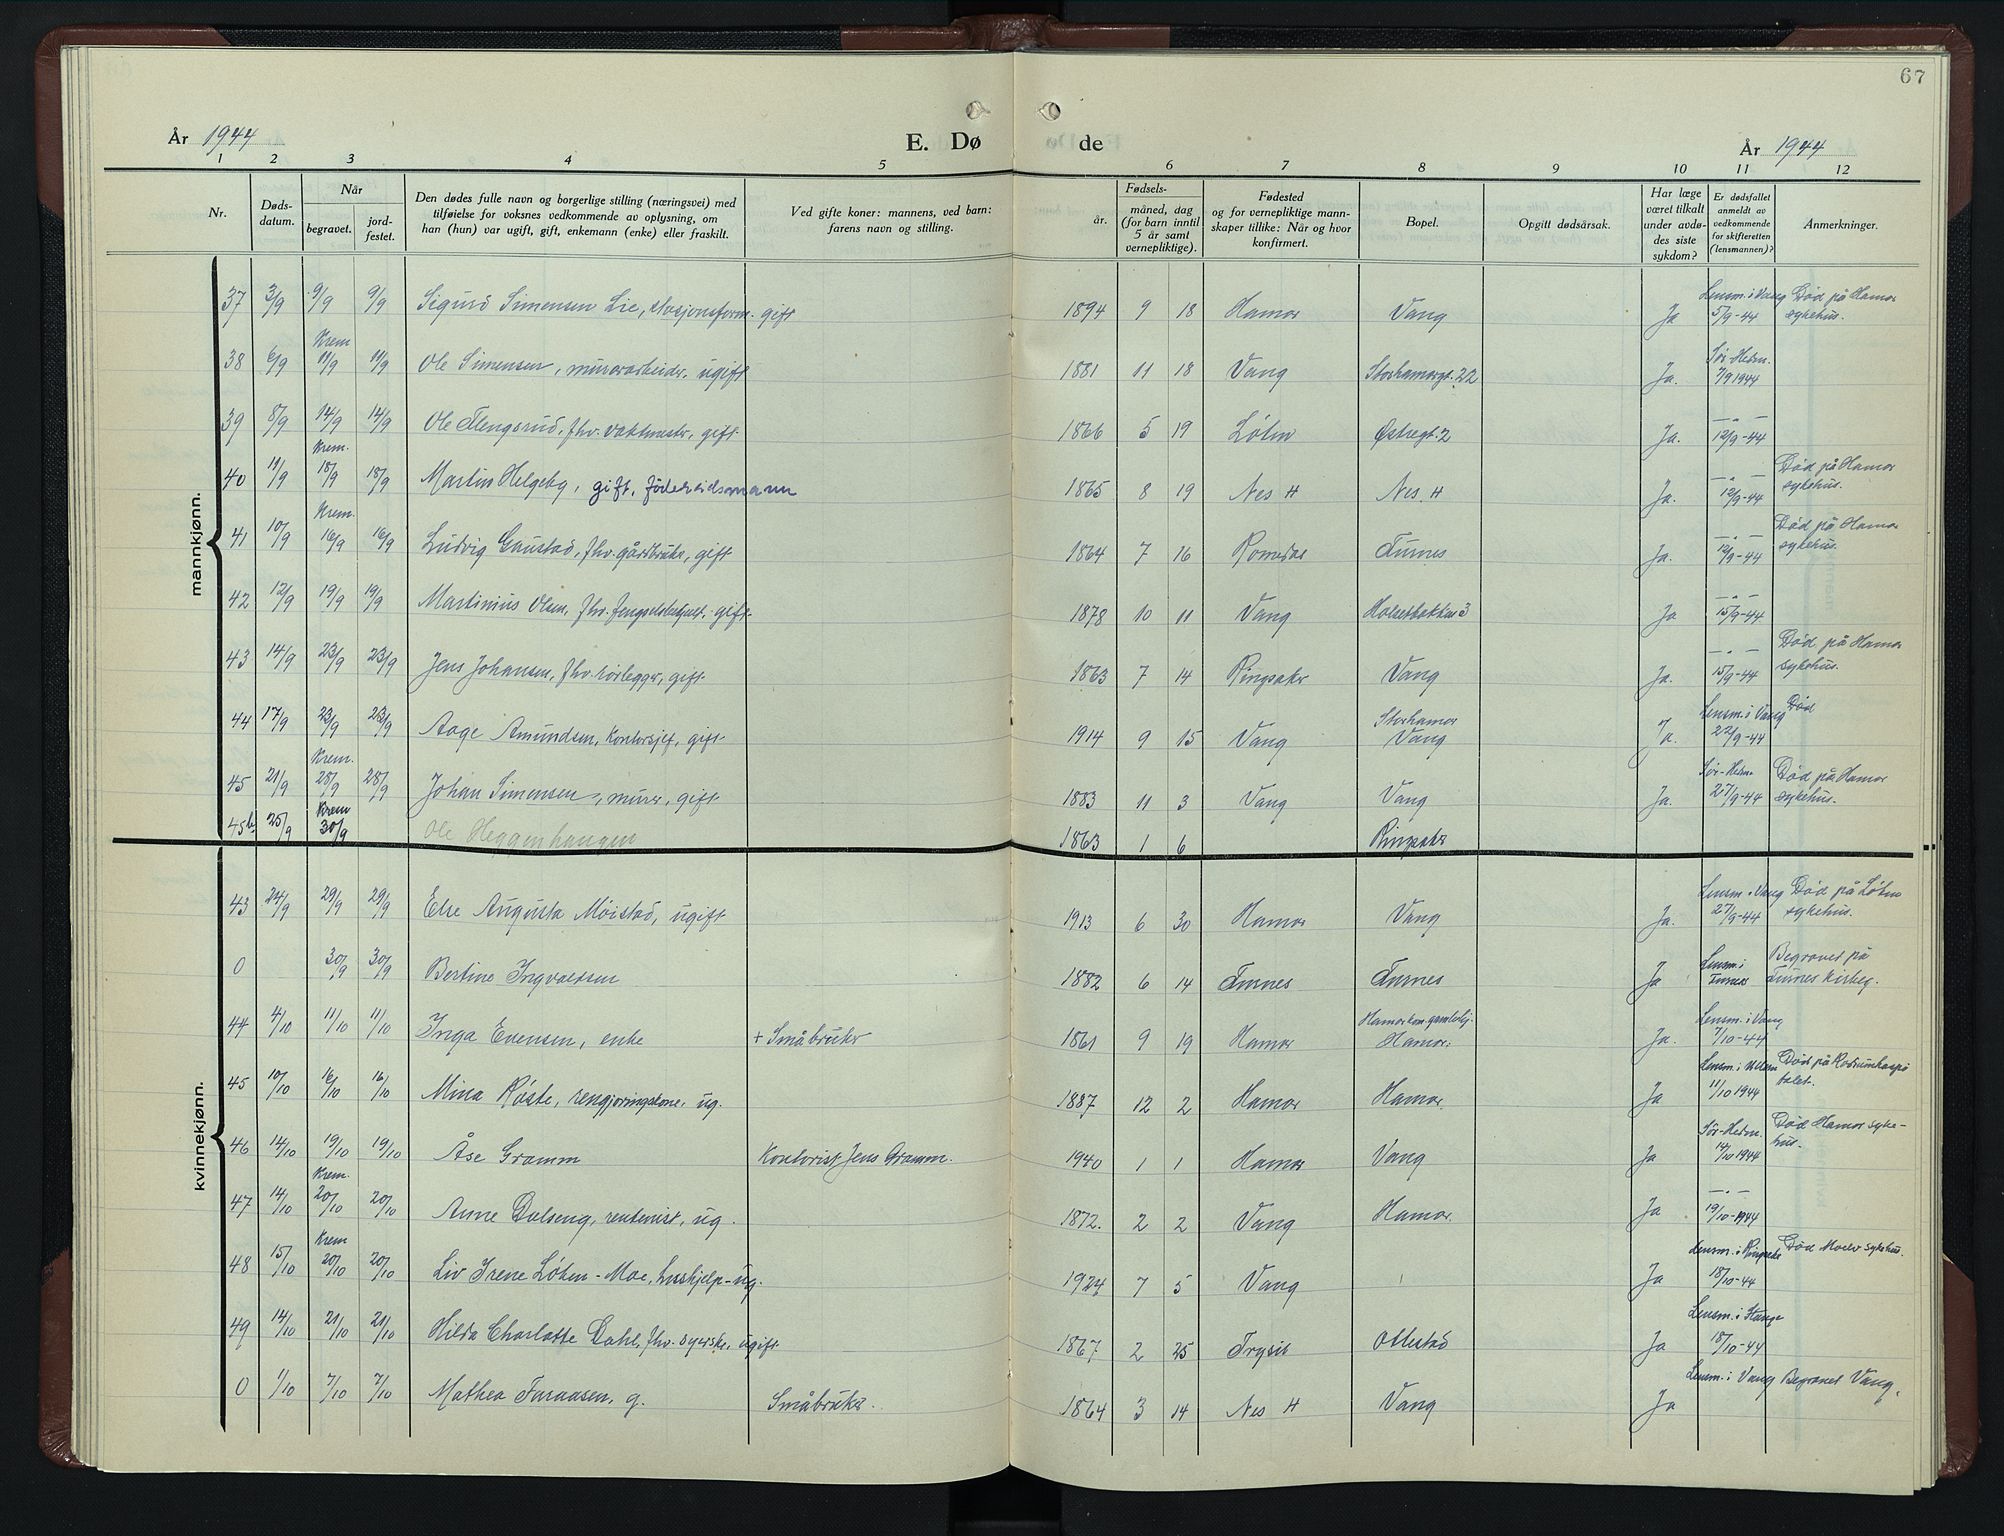 67
År 1944 E. Dø de År 1944
1 2 3 4 5 6 7 8 9 10 11 12
Nr. Dødsdatum. Når begravet. jordfestet. Den dødes fulle navn og borgerlige stilling (næringsvei) med tilføielse for voksnes vedkommende av oplysning, om han (hun) var ugift, gift, enkemann (enke) eller fraskilt. Ved gifte koner: mannens, ved barn: farens navn og stilling. Fødsels- år. måned, dag (for barn inntil 5 år samt vernepliktige). Fødested og for vernepliktige mannskaper tillike: Når og hvor konfirmert. Bopel. Opgitt dødsårsak. Har læge været tilkalt under avdødes siste sykdom? Er dødsfallet anmeldt av vedkommende for skifteretten (lensmannen)? Anmerkninger.
mannkjønn.
37 3/9 9/9 9/9 Sigurd Simensen Lie, gift 1894 9 18 Hamar Vang Ja Lensm. i Vang 5/9-44 Død på Hamar sykehus.
38 6/9 Krem 11/9 11/9 Ole Simensen, murerarbeider, ugift 1881 11 18 Vang Storhamargt. 22 Ja. Sør-Hedm. 7/9 1944
39 8/9 14/9 14/9 Ole Flengsrud, fhv. vaktmester, gift 1866 5 19 Løten Østregt. 2 Ja. —„— 12/9-44
40 11/9 Krem. 18/9 18/9 Martin Helgeby, gift, føderådsmann 1865 8 19 Nes H Nes H Ja. —„— 12/9-44 Død på Hamar sykehus.
41 10/9 Krem. 16/9 16/9 Ludvig Gaustad, fhv. gårdbruker, gift 1864 7 16 Romedal Furnes Ja. —„— 12/9-44 Død på Hamar sykehus.
42 12/9 19/9 19/9 Martinius Olsen, fhv. fengselsbetjent, gift 1878 10 11 Vang Holsetbakken 3 Ja —„— 15/9-44
43 14/9 23/9 23/9 Jens Johansen, fhv. rørlegger, gift 1863 7 14 Ringsaker Vang Ja. —„— 15/9-44 Død på Hamar sykehus.
44 17/9 23/9 23/9 Aage Amundsen, kontorsjef, gift 1914 9 15 Vang Storhamar Vang Ja. Lensm. i Vang 22/9-44 Død
45 21/9 Krem. 28/9 28/9 Johan Simensen, murer, gift 1883 11 3 Vang Vang Ja. Sør-Hedm. 27/9-44 Død på Hamar sykehus.
45b 25/9 Krem 30/9 Ole Heggenhaugen 1863 1 6 Ringsaker
kvinnekjønn.
43 24/9 29/9 29/9 Else Augusta Møistad, ugift 1913 6 30 Hamar Vang Ja. Lensm. i Vang 27/9-44 Død på Løten sykehus.
0 30/9 30/9 Bertine Ingvaldsen 1882 6 14 Furnes Furnes Ja Lensm. i Furnes Begravet på Furnes kirkeg.
44 4/10 11/10 11/10 Inga Evensen, enke + Småbruker 1861 9 19 Hamar Hamar kom. gamlehj. Hamar. Ja. Lensm. i Vang 7/10-44
45 10/10 16/10 16/10 Mina Røste, rengjøringskone, ug. 1887 12 2 Hamar Hamar. Ja 11/10 1944 Død på Radiumhospitalet.
46 14/10 19/10 19/10 Åse Gramm Kontorist Jens Gramm. 1940 1 1 Hamar Vang Ja Sør-Hedm. 14/10 1944 Død Hamar sykehus.
47 14/10 Krem. 20/10 20/10 Anne Dalseng, rentenist, ug. 1872. 2 2 Vang Hamar. Ja —„— 19/10-1944
48 15/10 Krem 20/10 20/10 Liv Irene Løken-Moe, hushjelp-ug. 1924 7 5 Vang Ja Lensm. i Ringsaker 18/10-44 Død Moelv sykehus.
49 14/10 21/10 21/10 Hilda Charlotte Dahl, fhv. syerske, ugift 1867 2 25 Trysil Ottestad Ja Lensm. i Stange 18/10-44
0 1/10 7/10 7/10 Mathea Faraasen, g. Småbruker. 1864 3 14 Nes H Vang Ja Lensm. i Vang Begravet Vang.